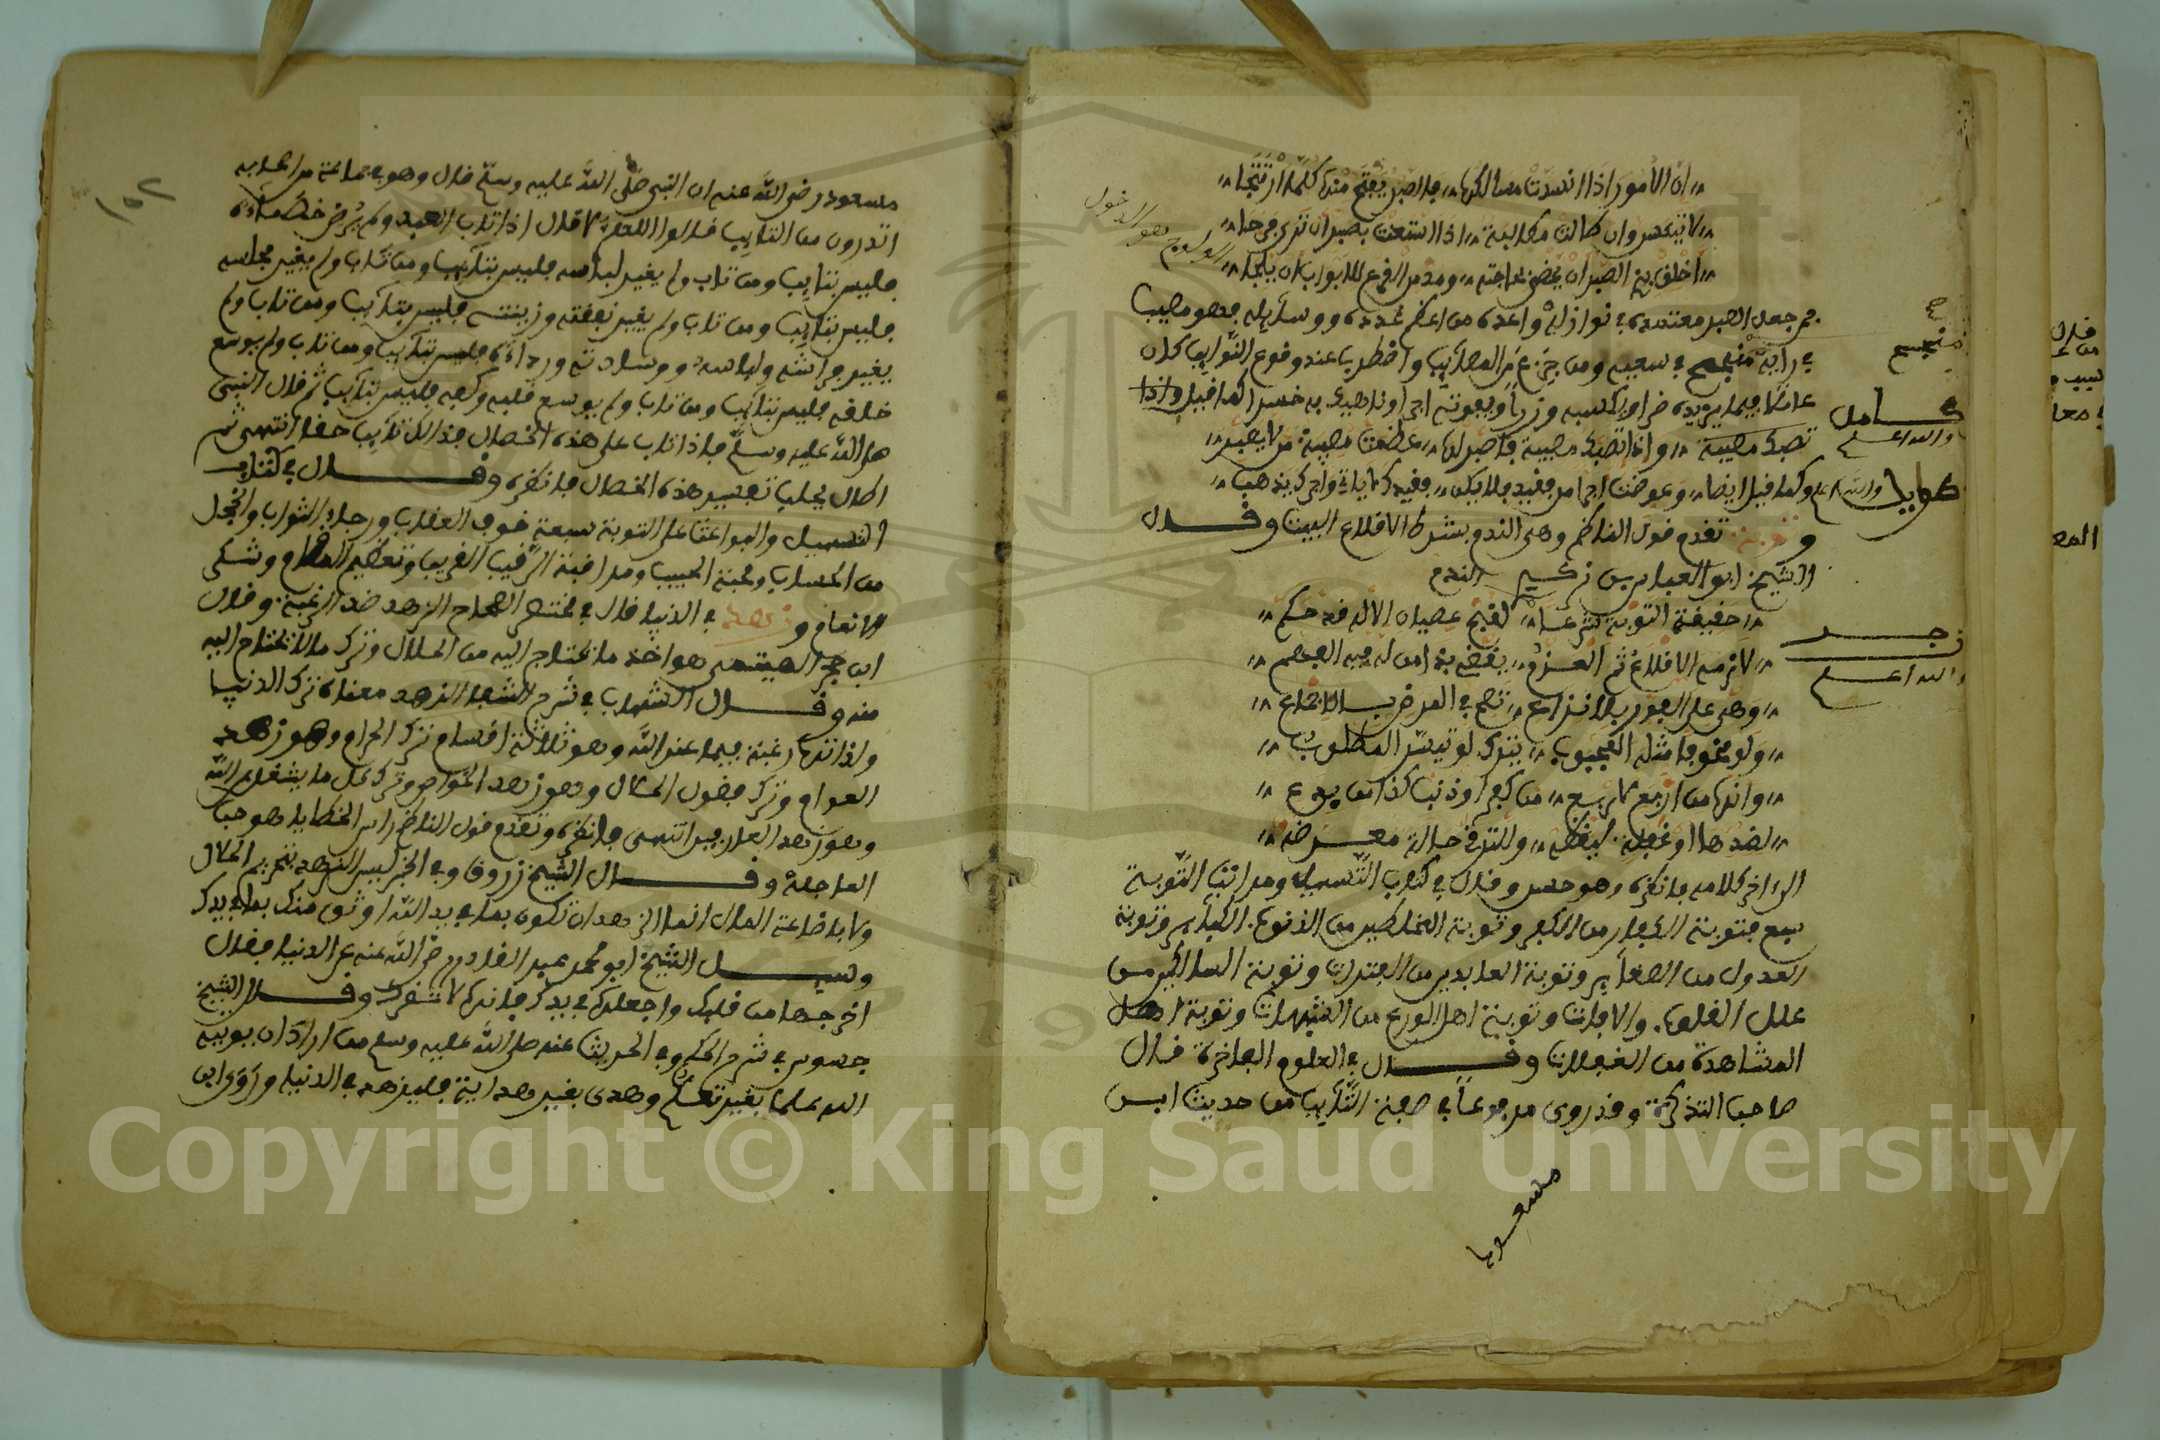 ان الامور اذا انسدت مسالكها فالصبر يفتح منها كلما ارتتجا
لا تيئسن وان طالت مطالبة اذا استعنت بصبر ان ترى فرجا
اخلق بذي الصبر ان يحظى بحاجته ومدمن القرع للابواب ان يلجا
الولوج هو الدخول
فمن جعل الصبر معتمده في نوازله واعده من اعظم عدده ووسايله فهو مصيب
في رايه منجح في سعيه ومن جزع من المصايب واضطرب عند وقوع النوايب كان
صح
منجح
عاملا فيما يزيده ضرا ويكسبه وزرا ويفوته اجرا وناهيك به خسرا كما قيل واذا
كامل
والله اعلم
تصبك مصيبة واذا تصبك مصيبة فاصبر لها عظمت مصيبة من لا يصبر
وكما قيل ايضا وعوضت اجرا من فقيد فلا يكن فقيدك لا ياتي واجرك يذهب
طويل والله اعلم
وتوبة تقدم قول الناظم وهي الندم بشرط الاقلاع البيت وقال
الشيخ ابو العباس بن زكري الندم
حقيقة التوبة شرعا لقبح عصيان الاله قد حكم
رجز
والله اعلم
لازمه الاقلاع ثم العزم يقضي بذا من له فيه الفهم
وهي على الفور بلا نزاع تصح في المرض بالاجماع
ولو مخوفا مثله المجبوب يترك لو تيسر المطلوب
وانها من ارفع مما ربع من كفر او ذنب كذا من بدع
لضدها او غفلة ليقظة وللترقي حالة معرضة
الى اخر كلامه فانظره وهو حسن وقال في كتاب التسهيل ومراتب التوبة
سبع فتوبة الكفار من الكفر وتوبة المخلطين من الذنوب الكباير وتوبة
العدول من الصغاير وتوبة العابدين من الفترات وتوبة السالكين من
علل القلوب والافات وتوبة اهل الورع من الشبهات وتوبة اهل
المشاهدة من الغفلات وقال في العلوم الفاخرة قال
صاحب التذكرة وقد روي مرفوعا في صفة التايب من حديث ابن
مسعود
١٥٢
مسعود رضي الله عنه ان النبي صلى الله عليه وسلم قال وهو في جماعة من اصحابه
اتدرون من التايب قالوا اللهم لا قال اذا تاب العبد ولم يرض خصماءه
فليس بتايب ومن تاب ولم يغير لباسه فليس بتايب ومن تاب ولم يغير مجلسه
فليس بتايب ومن تاب ولم يغير نفقته وزينته فليس بتايب ومن تاب ولم
يغير فراشه ولباسه ووسادته ورداءه فليس بتايب ومن تاب ولم يوسع
خلقه فليس بتايب ومن تاب ولم يوسع قلبه وكفه فليس بتايب ثم قال النبي
صلى الله عليه وسلم فاذا تاب على هذه الخصال فذالك تايب حقا انتهى ثم
اطال في تفسير هذه الخصال فانظره وقال في كتاب
التسهيل والبواعث على التوبة سبعة خوف العقاب ورجاء الثواب والخجل
من الحساب ومحبة الحبيب ومراقبة الرقيب القريب وتعظيم المقام وشكر
الانعام وزهد في الدنيا قال في مختصر الصحاح الزهد ضد الرغبة وقال
ابن حجر الهيتمي هو اخذ ما يحتاج اليه من الحلال وترك ما لا يحتاج اليه
منه وقال الشهاب في شرح الشفا الزهد معناه ترك الدنيا
ولذاتها رغبة فيما عند الله وهو ثلاثة اقسام ترك الحرام وهو زهد
العوام وترك فضول الحلال وهو زهد الخواص وترك كل ما يشغل عن الله
وهو زهد العارفين انتهى فانظره وتقدم قول الناظم راس الخطايا هو حب
العاجلة وقال الشيخ زروق وفي الخبر ليس الزهد بتحريم الحلال
ولا باضاعة المال انما الزهد ان تكون بما في يد الله اوثق منك بما في يدك
وسيل الشيخ ابو محمد عبد القادر رضي الله عنه عن الدنيا فقال
اخرجها من قلبك واجعلها في يدك فانها لا تضرك وقال الشيخ
جسوس في شرح الحكم وفي الحديث عنه صلى الله عليه وسلم من اراد ان يوتيه
الله علما بغير تعلم وهدى بغير هداية فليزهد في الدنيا وروى ابن
Copyright © King Saud University